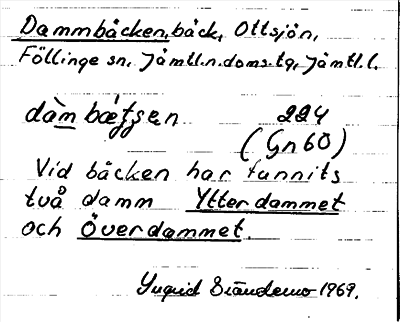 Dammbäcken, bäck, Ottsjön,
Föllinge sn, Jämtl.n.doms.tg, Jämtl.l.
dàm bætsen 224
(Gn60)
Vid bäcken har funnits
två damm Ytterdammet
och Överdammet.
Yngrid 1969.